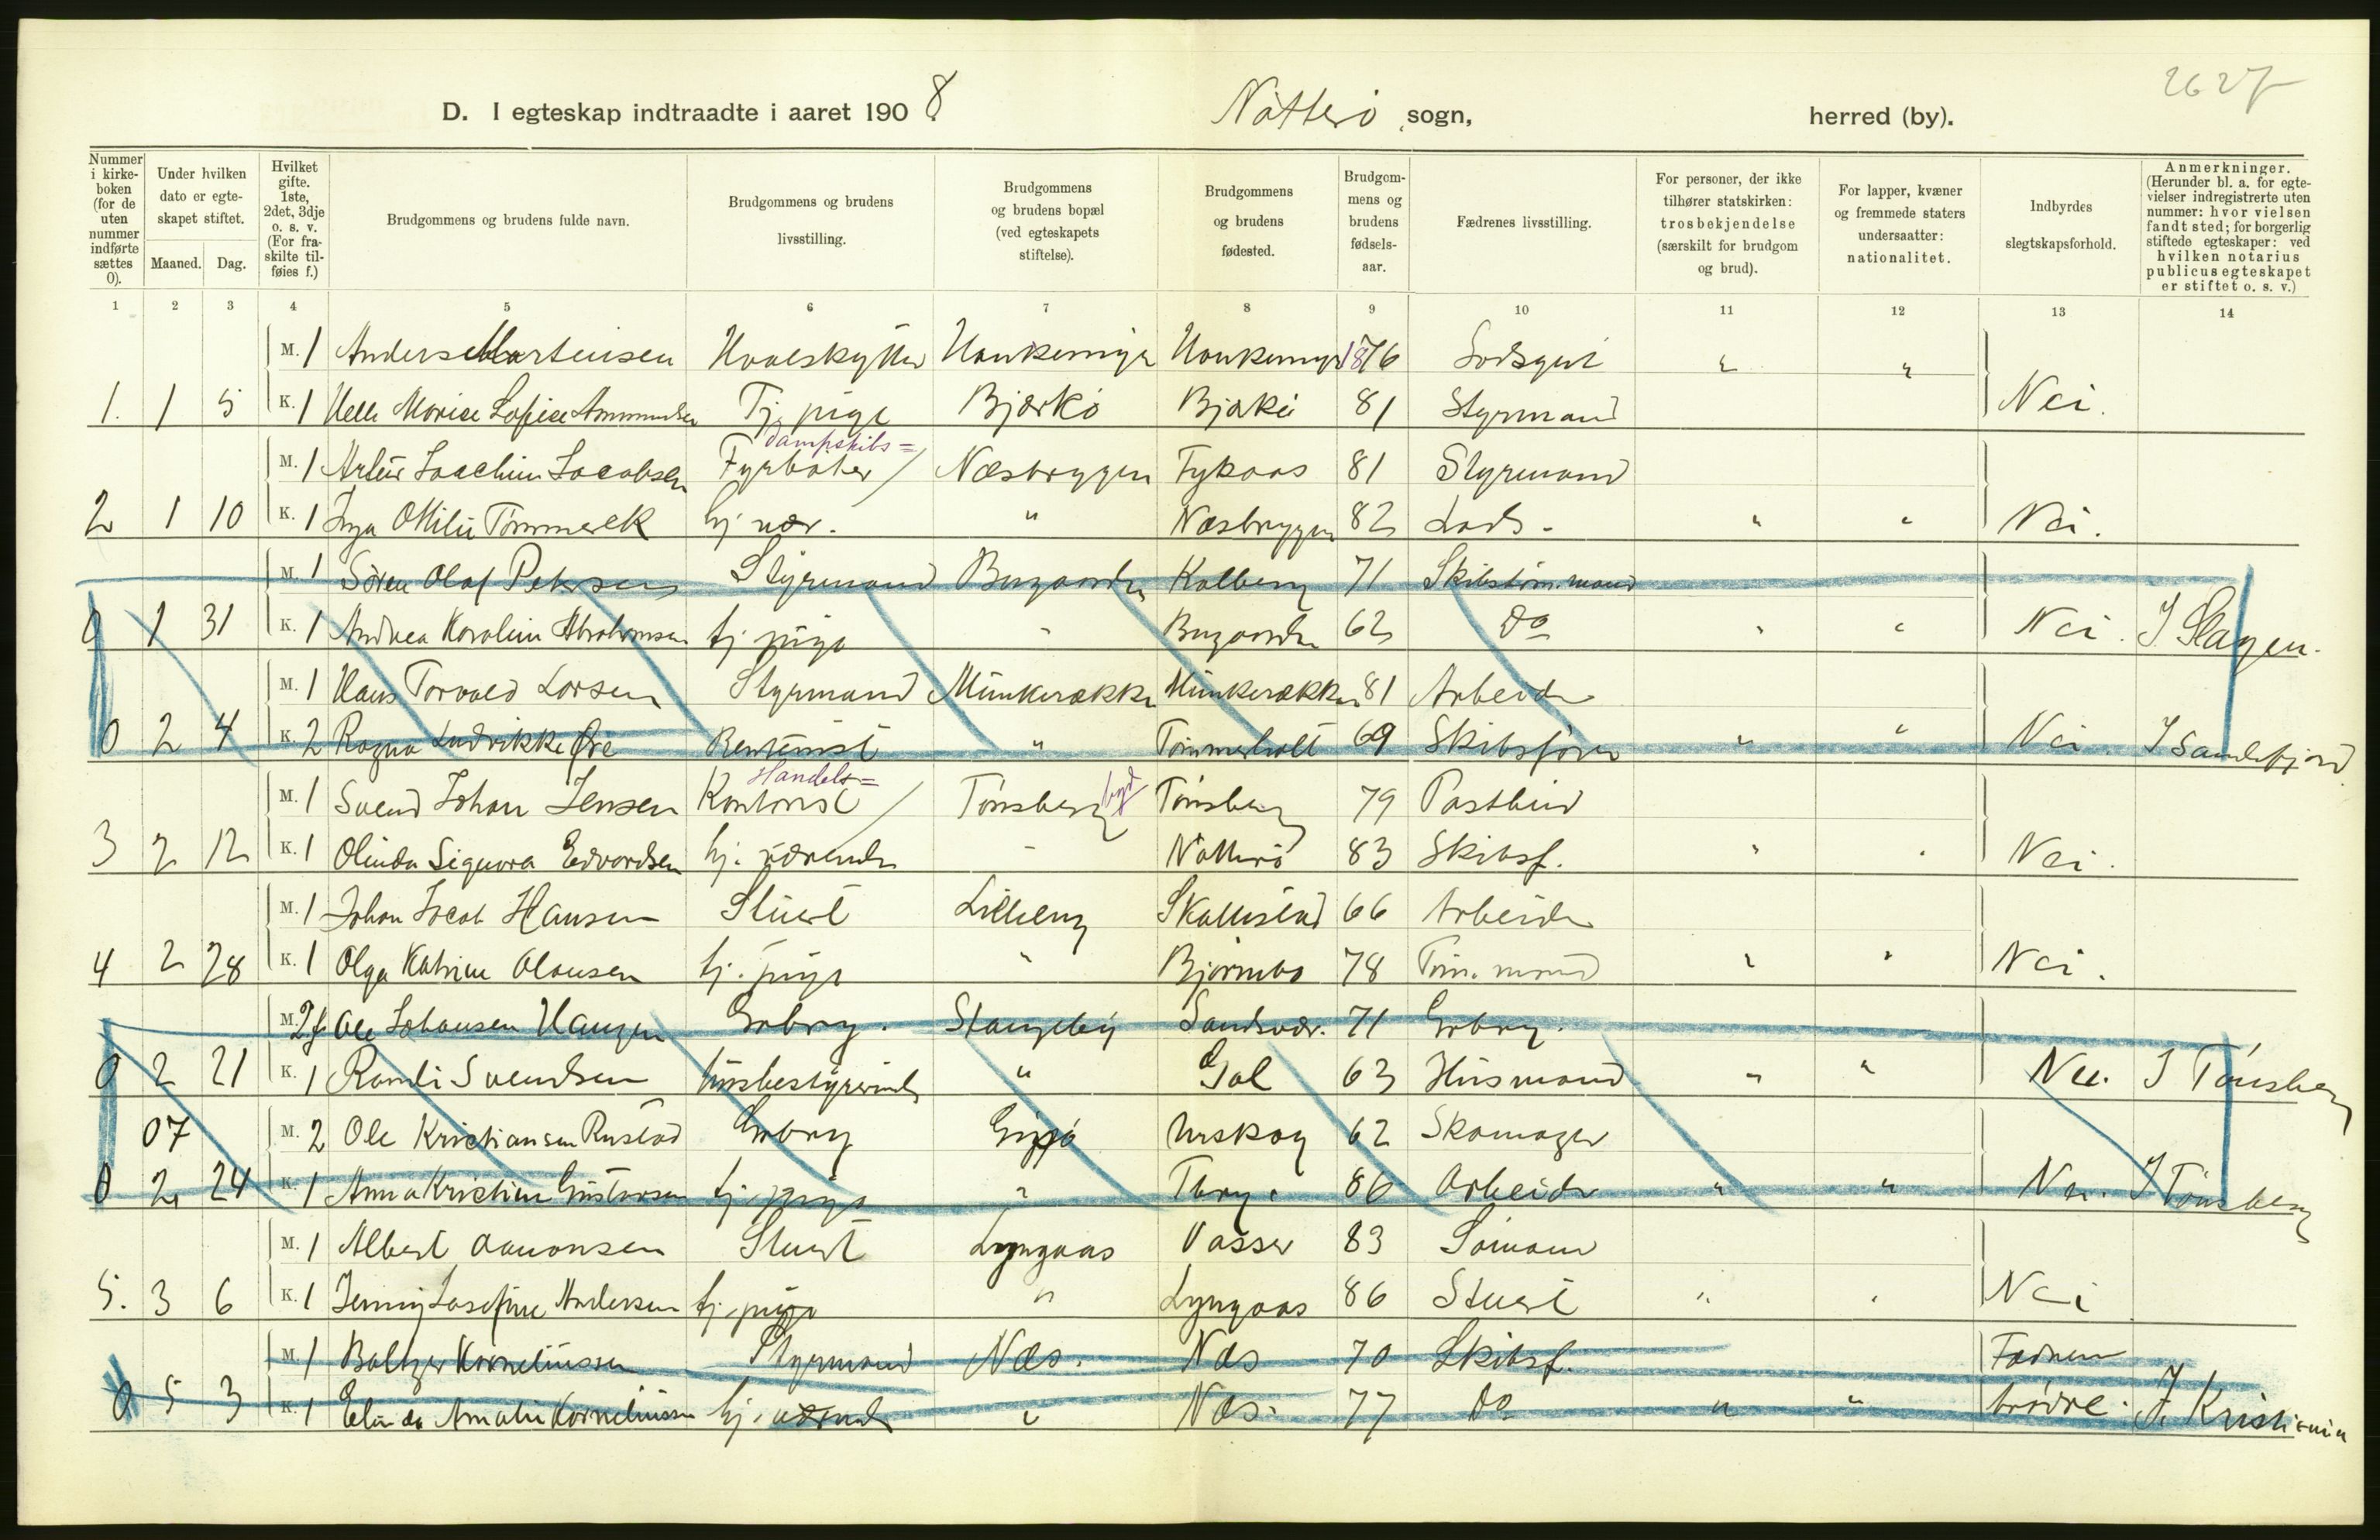 2627
D. I egteskap indtraadte i aaret 1908. Nötterö sogn, herred (by).
Nummer i kirkeboken (for de uten nummer indførte sættes 0).
Under hvilken dato er egteskapet stiftet.
Maaned. Dag.
Hvilket gifte. 1ste, 2det, 3dje o. s. v. (For fraskilte tilføies f.)
Brudgommens og brudens fulde navn.
Brudgommens og brudens livsstilling.
Brudgommens og brudens bopæl (ved egteskapets stiftelse).
Brudgommens og brudens fødested.
Brudgommens og brudens fødselsaar.
Fædrenes livsstilling.
For personer, der ikke tilhører statskirken: trosbekjendelse (særskilt for brudgom og brud).
For lapper, kvæner og fremmede staters undersaatter: nationalitet.
Indbyrdes slegtskapsforhold.
Anmerkninger. (Herunder bl. a. for egtevielser indregistrerte uten nummer: hvor vielsen fandt sted; for borgerlig stiftede egteskaper: ved hvilken notarius publicus egteskapet er stiftet o. s. v.)
1 2 3 4 5 6 7 8 9 10 11 12 13 14
M. 1 Anders Martinsen Hvalskytter 1876 " "
1. 1 5 K. 1 Tj. pige Bjærkö Bjærkö 81 Styrmand Nei.
dampskibs=
M. 1 Artur Joachim Jacobsen Fyrböter / Næsbryggen 81 Styrmand
2 1 10 K. 1 Inga Ottilie hj. vær. " Næsbryggen 82 Lods. " " Nei.
M. 1 Sören Olaf Petersen Styrmand Kalberg 71 Skibstöm.mand
0 1 31 K. 1 Andrea Karoline Abrahamsen tj. pige " 62 Do " " Nei. I Slagen.
M. 1 Hans Torvald Larsen Styrmand Munkerækken Munkerækken 81 Arbeider
0 2 4 K. 2 Ragna Ludvikke Öre Rentenist " Tömmerholt 69 Skibsförer " " Nei. I Sandefjord.
Handels=
M. 1 Svend Johan Jensen Kontorist / Tönsberg by Tönsberg 79 Postbud
3 2 12 K. 1 Olinda Signora Edvardsen hj. værende " Nötterö 83 Skibsf. " " Nei.
M. 1 Johan Jacob Hansen Stuert Lilleeng Skallestad 66 Arbeider
4 2 28 K. 1 Olga Katrine Olausen tj. pige " Björnebo 78 Töm. mand " " Nei.
M. 2f Ole Johansen Haugen Grbrg. Stangeby Sandsvær. 71 Grbrg.
0 2 21 K. 1 Randi Svendsen husbestyrerinde " Gol 63 Husmand " " Nei. I Tönsberg
07 M. 2 Ole Kristiansen Rustad Grbrg Gipö Urskog 62 Skomager
0 2. 24 K. 1 Anna Kristine Gustavsen tj. pige " Tbrg. 86 Arbeider " " Nei. I Tönsberg
M. 1 Albert Aanonsen Stuert Lyngaas Vasser 83 Sömand
5. 3 6 K. 1 Jenny Josefine Andersen tj. pige " Lyngaas 86 Stuert " " Nei
M. 1 Baltzer Korneliussen Styrmand Næs. Næs 70 Skibsf. Fædrene
0 5 3 K. 1 Amalie Korneliussen hj. værende " Næs. 77 Do " " brödre. I Kristiania